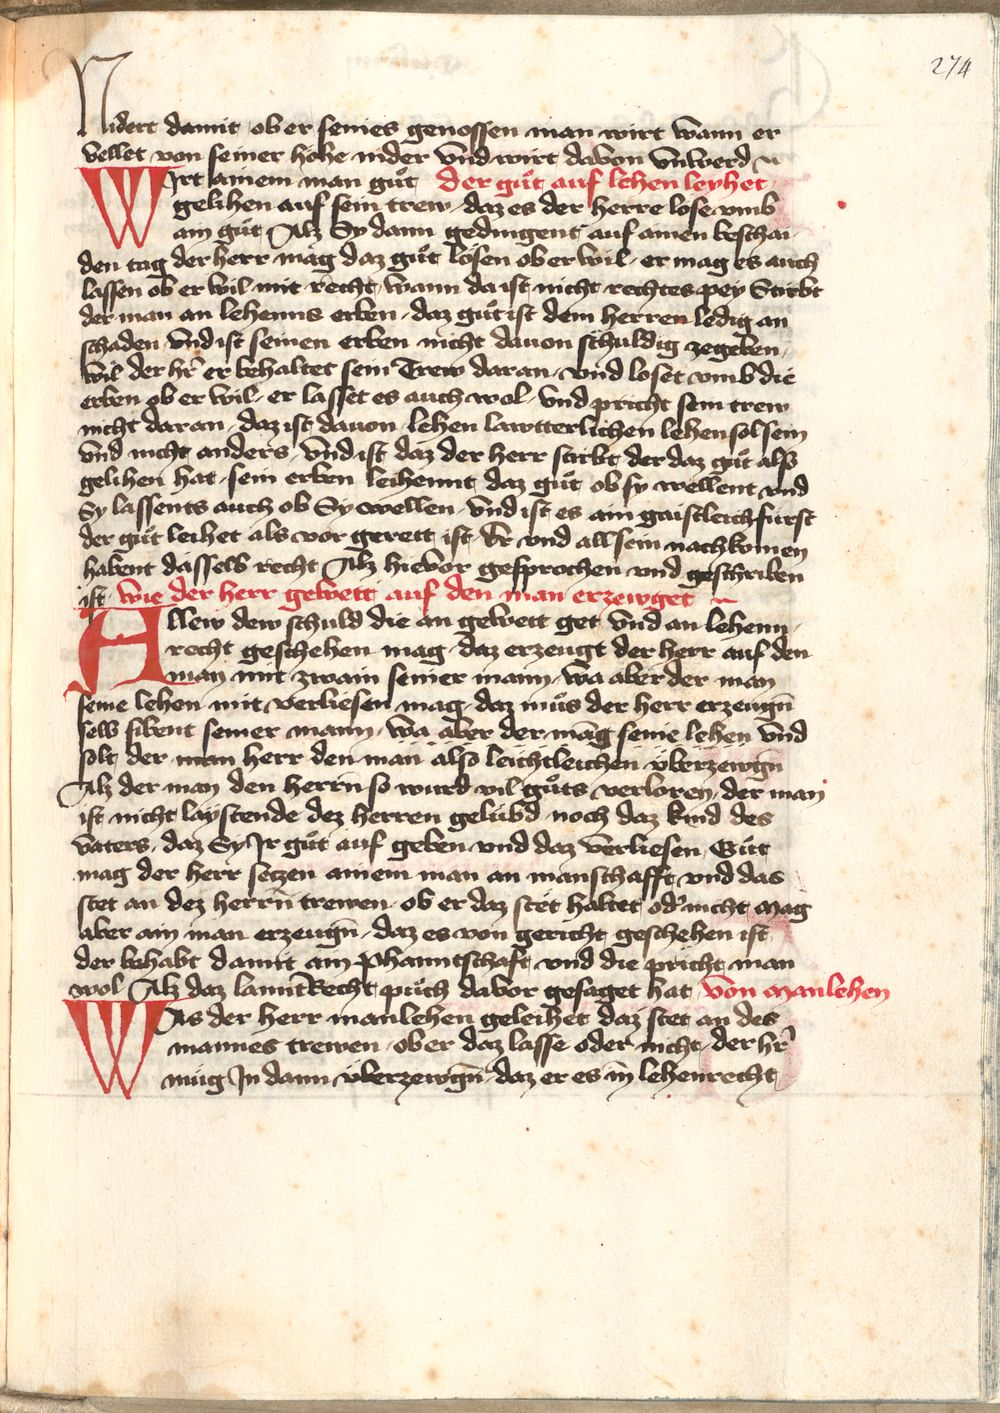 274
Nidert damit ob er seines genossen man wirt wann er
vellet von seiner hohe nider vnd wirt davon vnwerd
Wirt ainem man gůt der gůt auf lehen leyhet
gelihen auf sein trew daz es der herre lose vmb
ain gůt Alz Sy dann gedingent auf ainen beschai
den tag der herr mag daz gůt lösen ob er wil er mag es auch
lassen ob er wil mit recht wann da ist nicht rechtes pey Stirbt
der man an lehenns erben daz gůt ist dem herren ledig an
schaden vnd ist seinen erben nicht dauon schuldig zegeben
wil der hr er behaltet sein Trew daran vnd loset vmb die
erben ob er wil er lasset es auch wol vnd pricht sein trew
nicht daran daz ist dauon lehen lawtterlichen lehen sol sein
vnd nicht anders vnd ist daz der herr stirbt der daz gůt alß
gelihen hat sein erben leihennt daz gůt ob sy wellent vnd
Sy lassents auch ob Sy wellen vnd ist es ain gaistleich fürst
der gůt leihet als vor gerett ist Er vnd all sein nachkomen
habent dasselb recht Alz hievor gesprochen vnd geschriben
ist wie der herr gewett auf den man erzewget
Allew dew schuld die an gewett get vnd an lehenn
recht geschehen mag daz erzeugt der herr auf den
man mit zwain seiner mann wa aber der man
seine lehen mit verliesen mag daz můs der herr erzeugn̄
selb sibent seiner mann wa aber der mag seine lehen vnd
solt der man herr den man also leichtleichen überzewgn̄
Alz der man den herrn so wurd vil gůts verloren der man
ist nicht laystende dez herren gelübd noch daz kind des
vaters daz Sy Ir gůt auf geben vnd daz verliesen Gůt
mag der herr setzen ainem man an manschafft vnd das
stet an dez herrn̄ trewen ob er daz stët haltet od' nicht mag
aber ain man erzeugn̄ daz es von gericht geschehen ist
der behabt damit ain phanntschaft vnd die pricht man
wol Alz daz lannt Recht půch davor gesaget hat von manlehen
Was der herr manlehen geleihet daz stet an des
mannes trewen ob er daz lasse oder nicht der hr'
müg In dann überzewgn̄ daz er es in lehenrecht